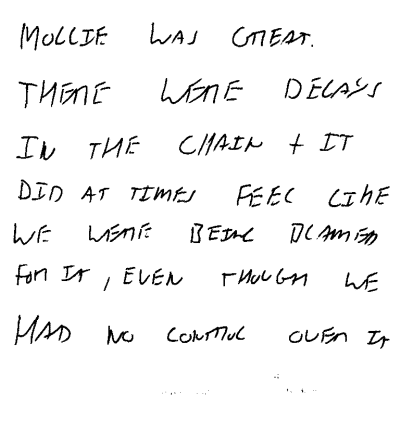 MOLLIE WAS GREAT.
THERE WERE DELAYS
IN THE CHAIN + IT
DID AT TIMES FEEL LIKE
WE WERE BEING BLAMED
FOR IT, EVEN THOUGH WE
HAD NO CONTROL OVER IT